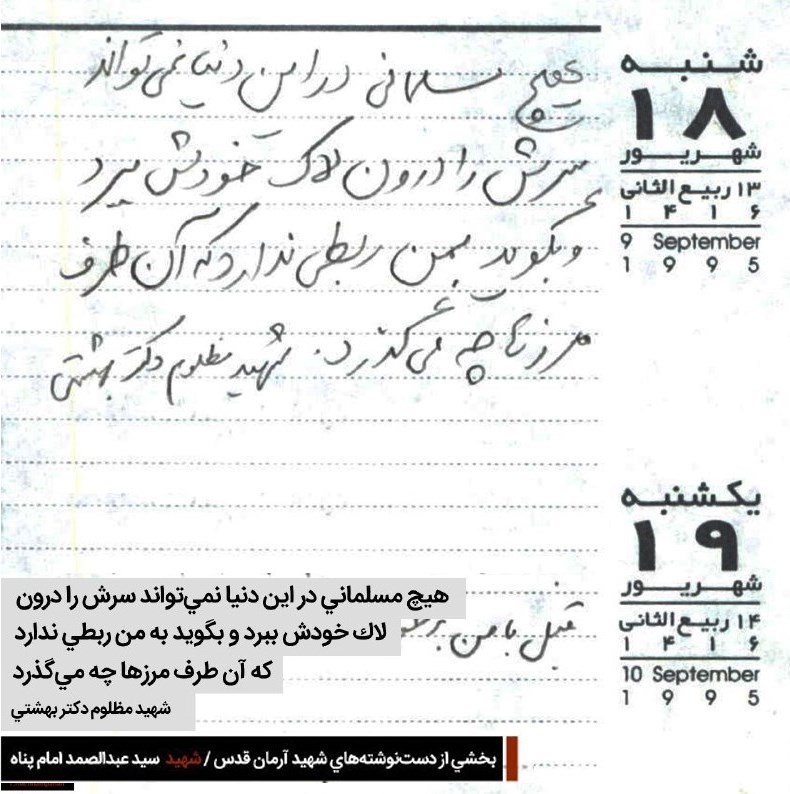 هیچ مسلمانی در این دنیا نمی تواند
سرش را درون لاک خودش ببرد
و بگوید بمن ربطی ندارد که آن طرف
مرزها چه می گذرد. شهید مظلوم دکتر بهشتی
شنبه
۱۸
شهریور
۱۳ ربیع الثانی
۱ ۴ ۱ ۶
9 September
1 9 9 5
یکشنبه
۱۹
شهریور
۱۴ ربیع الثانی
۱ ۴ ۱ ۶
10 September
1 9 9 5
قبل با من
هیچ مسلماني در این دنیا نمي‌تواند سرش را درون
لاك خودش ببرد و بگوید به من ربطي ندارد
که آن طرف مرزها چه مي‌گذرد
شهید مظلوم دکتر بهشتي
بخشي از دست‌نوشته‌هاي شهید آرمان قدس / شهید سید عبدالصمد امام پناه